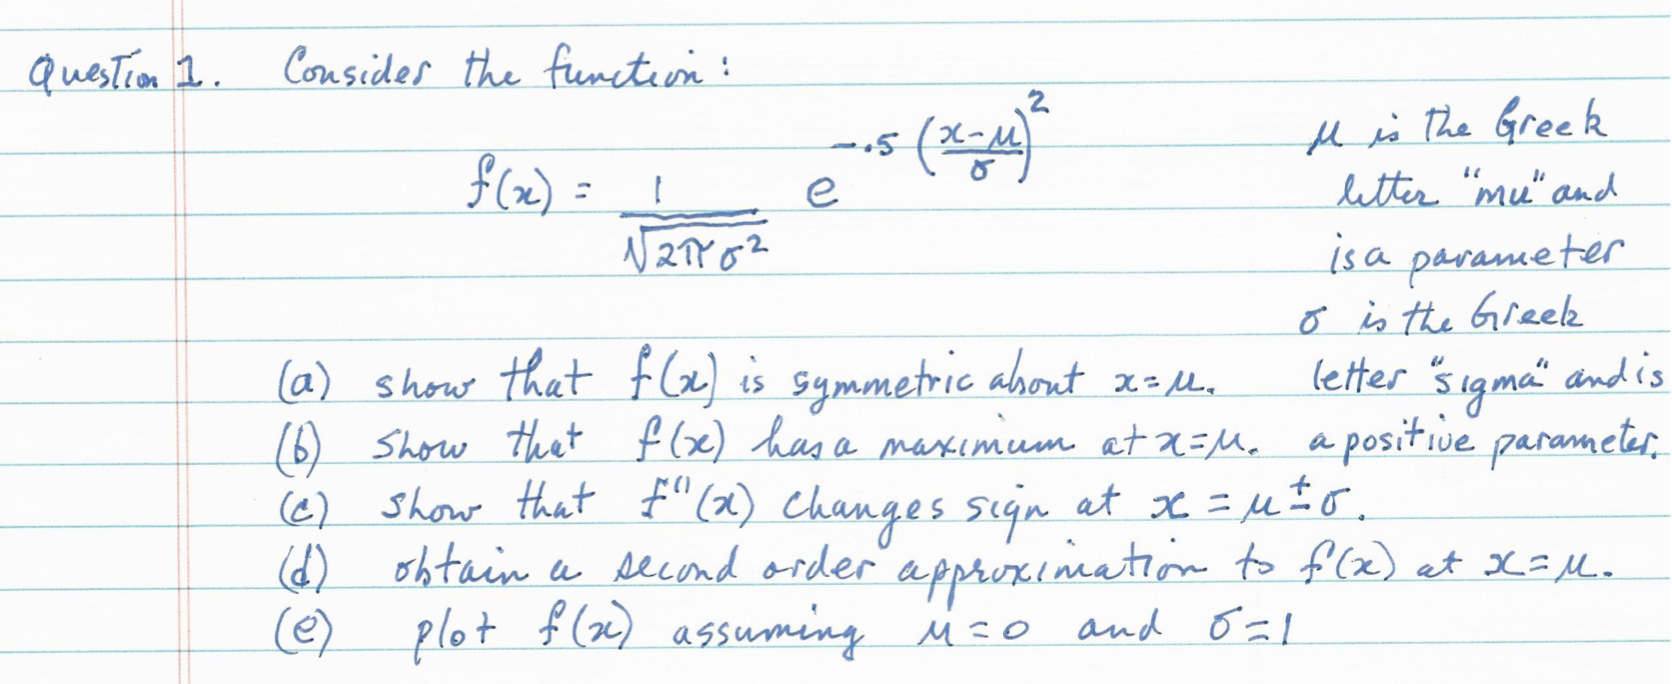 Question 1. Consider the function:
f(x) = 1/√(2πσ²) e^(-.5((x-μ)/σ)²)
μ is the Greek
letter "mu" and
is a parameter
σ is the Greek
letter "sigma" and is
a positive parameter.
(a) show that f(x) is symmetric about x=μ.
(b) show that f(x) has a maximum at x=μ.
(c) show that f"(x) changes sign at x = μ ± σ.
(d) obtain a second order approximation to f(x) at x=μ.
(e) plot f(x) assuming μ=0 and σ=1